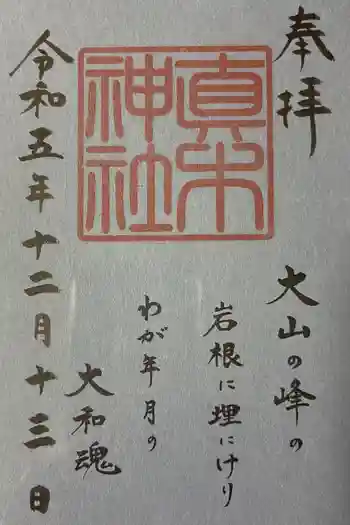 奉拝
真木神社
大山の峰の
岩根に埋にけり
わが年月の
大和魂
令和五年十二月十三日